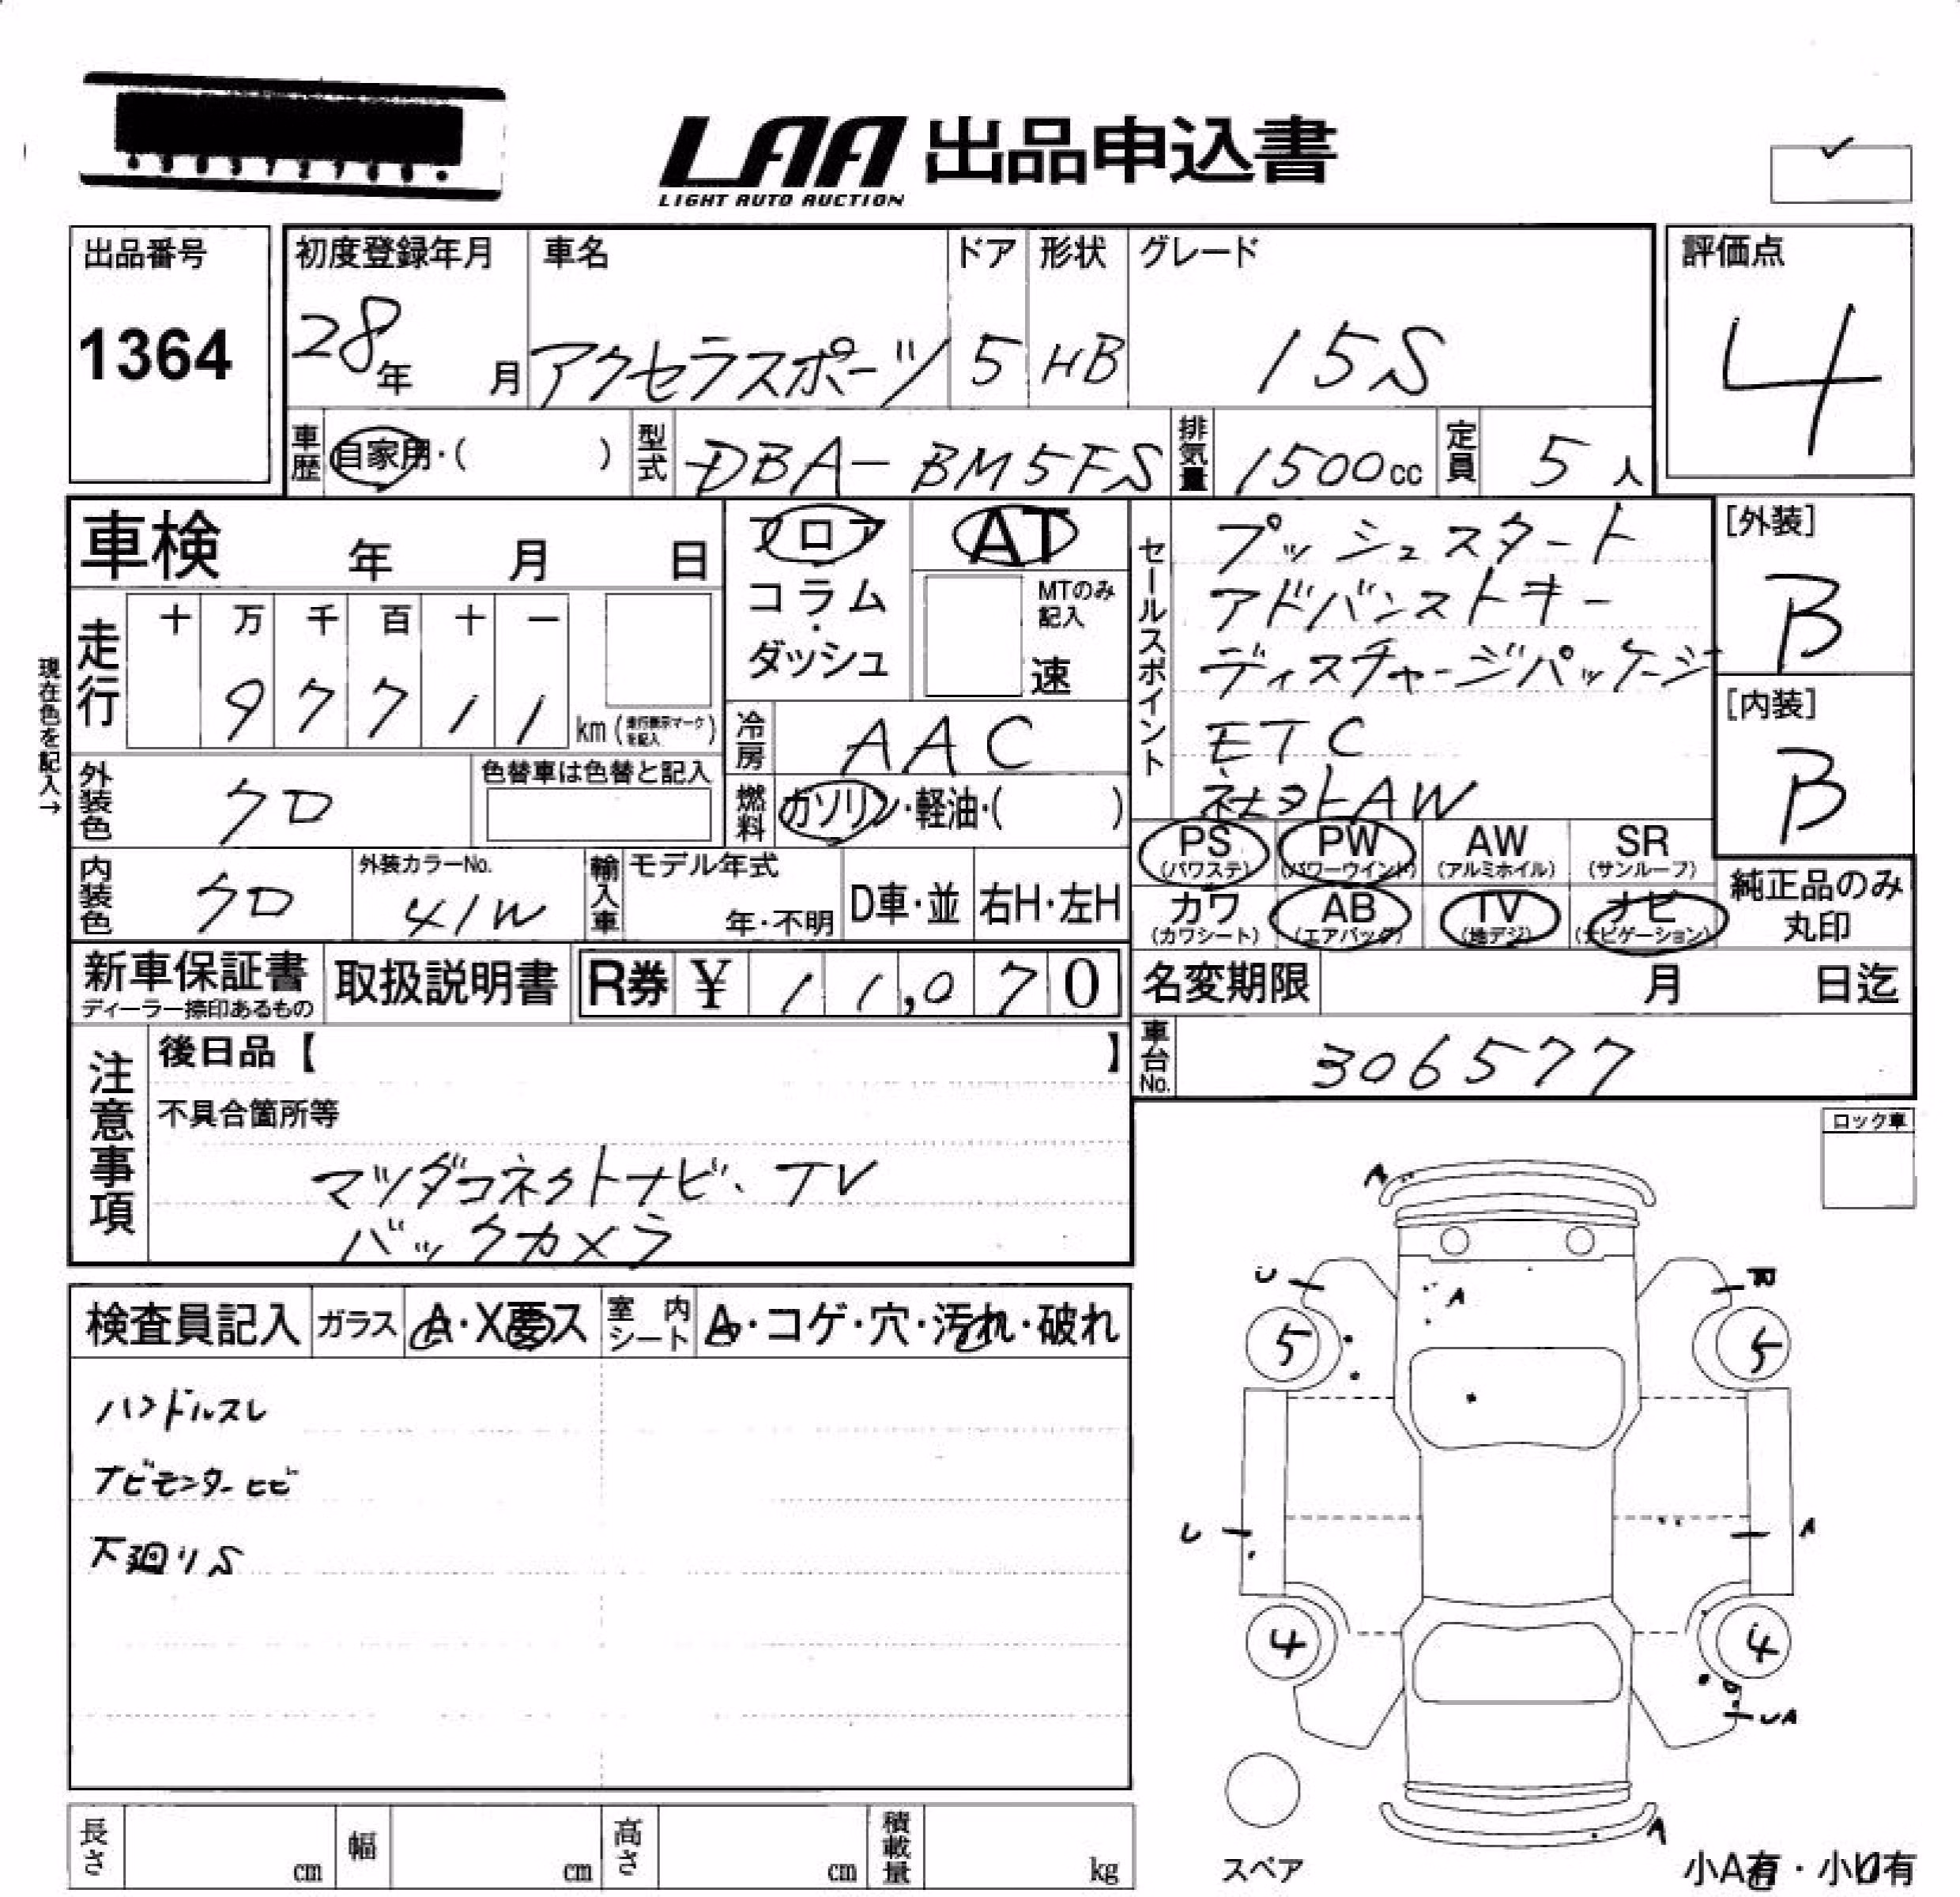 LAA 出品申込書
LIGHT AUTO AUCTION
出品番号
1364
初度登録年月
28年 月
車名
アクセラスポーツ
ドア
5
形状
HB
グレード
15S
評価点
4
車歴 自家用・( )
型式 DBA-BM5FS
排気量 1500cc
定員 5人
車検 年 月 日
フロア・コラム・ダッシュ
AT
MTのみ記入
速
セールスポイント
プッシュスタート
アドバンストキー
ディスチャージパッケージ
ETC
社外AW
[外装]
B
[内装]
B
現在色を記入→
走行
十 万 千 百 十 一
9 7 7 1 1 km (走行表示マークを記入)
冷房 AAC
燃料 ガソリン・軽油・( )
外装色 クロ
色替車は色替と記入
内装色 クロ
外装カラーNo.
41W
輸入車
モデル年式
年・不明
D車・並
右H・左H
PS (パワステ)
PW (パワーウインド)
AW (アルミホイル)
SR (サンルーフ)
カワ (カワシート)
AB (エアバッグ)
TV (地デジ)
ナビ (ナビゲーション)
純正品のみ丸印
新車保証書
ディーラー捺印あるもの
取扱説明書
R券 ¥ 11,070
名変期限 月 日迄
車台No. 306577
注意事項
後日品【 】
不具合箇所等
マツダコネクトナビ、TV
バックカメラ
ロック車
検査員記入
ガラス A・X要ス
室内シート A・コゲ・穴・汚れ・破れ
ハンドルスレ
ナビモンターヒビ
下廻りS
A
U
A
5
5
U
A
4
4
UA
A
スペア
小A有・小U有
長さ cm
幅 cm
高さ cm
積載量 kg